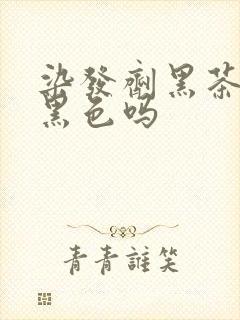 染發劑黑茶
黑色嗎
青青誰笑